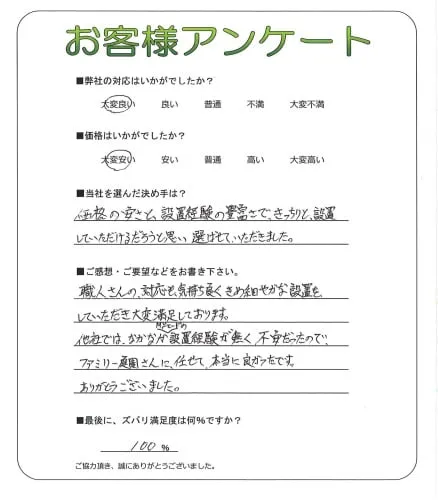 お客様アンケート
■弊社の対応はいかがでしたか？
大変良い 良い 普通 不満 大変不満
■価格はいかがでしたか？
大変安い 安い 普通 高い 大変高い
■当社を選んだ決め手は？
価格の安さと、設置経験の豊富さで、きっちりと、設置
していただけるだろうと思い 選ばせていただきました。
■ご感想・ご要望などをお書き下さい。
職人さんの、対応も、気持ち良く きめ細やかな設置を、
していただき大変満足しております。
他社では、なかなか設置経験が無く、不安だったので、
ファミリー庭園さんに、任せて、本当に良かったです。
ありがとうございました。
■最後に、ズバリ満足度は何％ですか？
100 %
ご協力頂き、誠にありがとうございました。